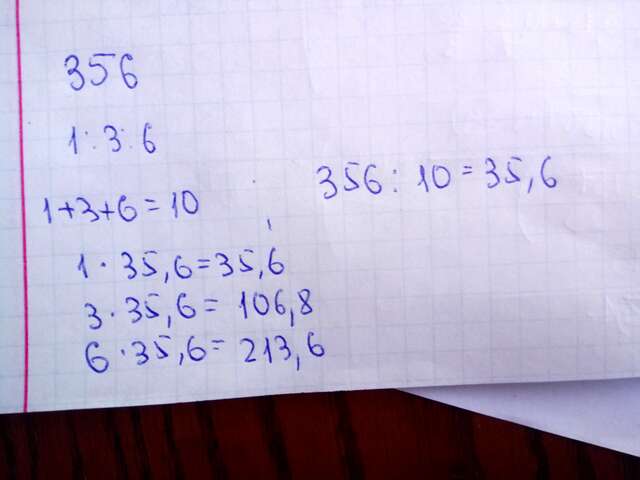 356
1:3:6
1+3+6=10
356:10=35,6
1·35,6=35,6
3·35,6=106,8
6·35,6=213,6